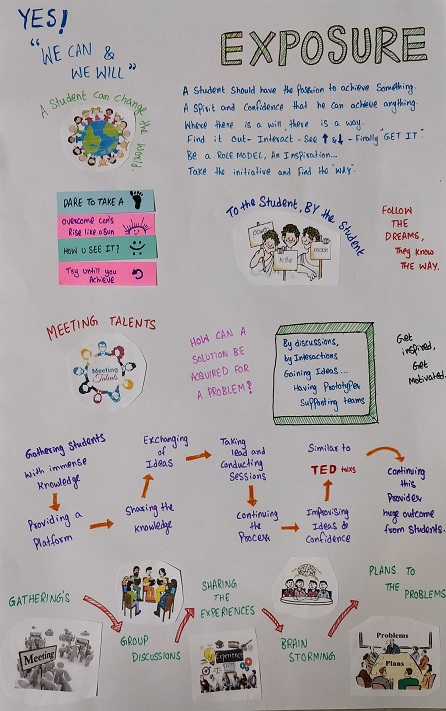 YES!
"WE CAN &
WE WILL"
EXPOSURE
A Student can change the world.
A Student should have the Passion to achieve Something.
A Spirit and Confidence that he can achieve anything.
Where there is a will, there is a way.
Find it Out - Interact - See ↑ & ↓ - Finally "GET IT"
Be a ROLE MODEL, An Inspiration...
Take the initiative and find the "WAY"
DARE TO TAKE A
Overcome
Rise like a Sun
HOW U SEE IT?
Try until you
Achieve
To the Student, BY the Student
to the
people
FOLLOW
THE
DREAMS,
They know
THE WAY.
MEETING TALENTS
Meeting
Talents
HOW CAN A
SOLUTION BE
ACQUIRED FOR
A PROBLEM?
By discussions,
by Interactions
Gaining Ideas...
Having Prototypes
Supporting teams
Get
inspired,
Get
Motivated.
Gathering Students
with immense
Knowledge
Providing a
Platform
Sharing the
Knowledge
Exchanging
of Ideas
Taking
lead and
Conducting
Sessions
Continuing
the
Process
Improvising
Ideas &
Confidence
Similar to
TED talks
Continuing
this
Provides
huge outcome
from Students.
GATHERING'S
Meeting
GROUP
DISCUSSIONS
SHARING
THE
EXPERIENCES
Experience
BRAIN
STORMING
PLANS TO
THE PROBLEMS
Problems
Plans